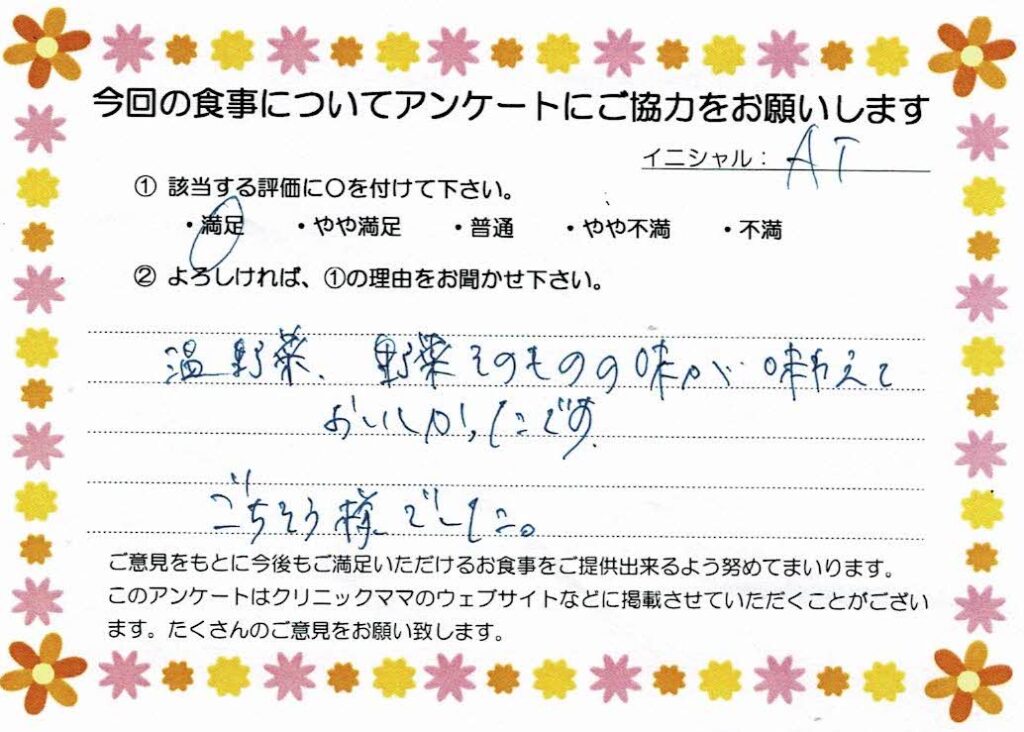 今回の食事についてアンケートにご協力をお願いします
イニシャル： AT
① 該当する評価に〇を付けて下さい。
・満足 ・やや満足 ・普通 ・やや不満 ・不満
② よろしければ、①の理由をお聞かせ下さい。
温野菜、野菜そのものの味が味わえて
おいしかったです。
ごちそう様でした。
ご意見をもとに今後もご満足いただけるお食事をご提供出来るよう努めてまいります。
このアンケートはクリニックママのウェブサイトなどに掲載させていただくことがござい
ます。たくさんのご意見をお願い致します。